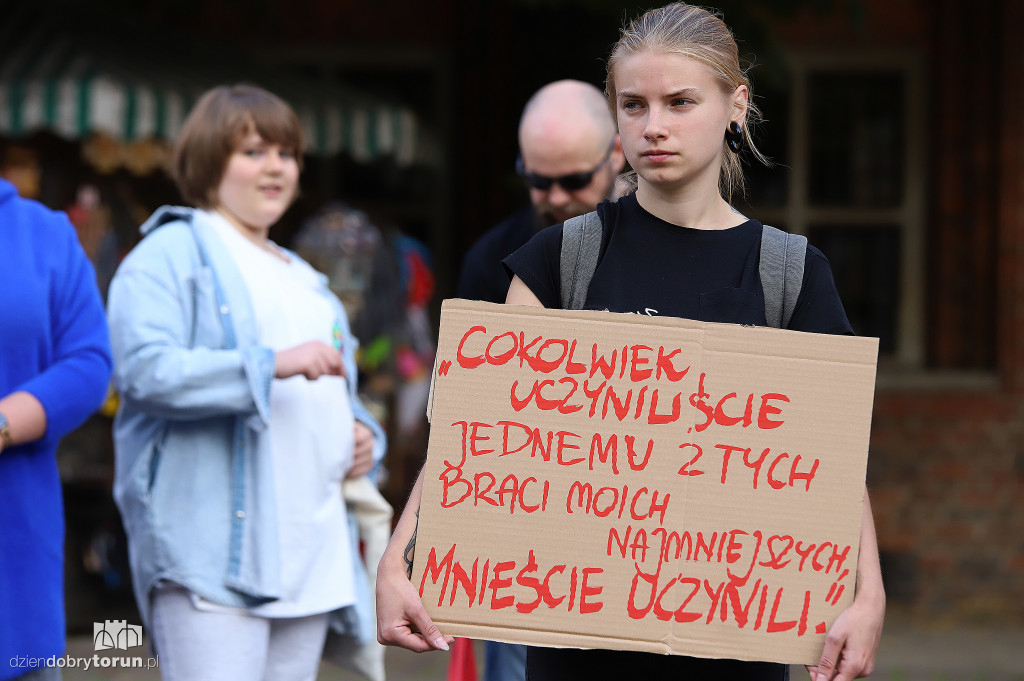 „COKOLWIEK
UCZYNILIŚCIE
JEDNEMU Z TYCH
BRACI MOICH
NAJMNIEJSZYCH,
MNIEŚCIE UCZYNILI."
dziendobrytorun.pl